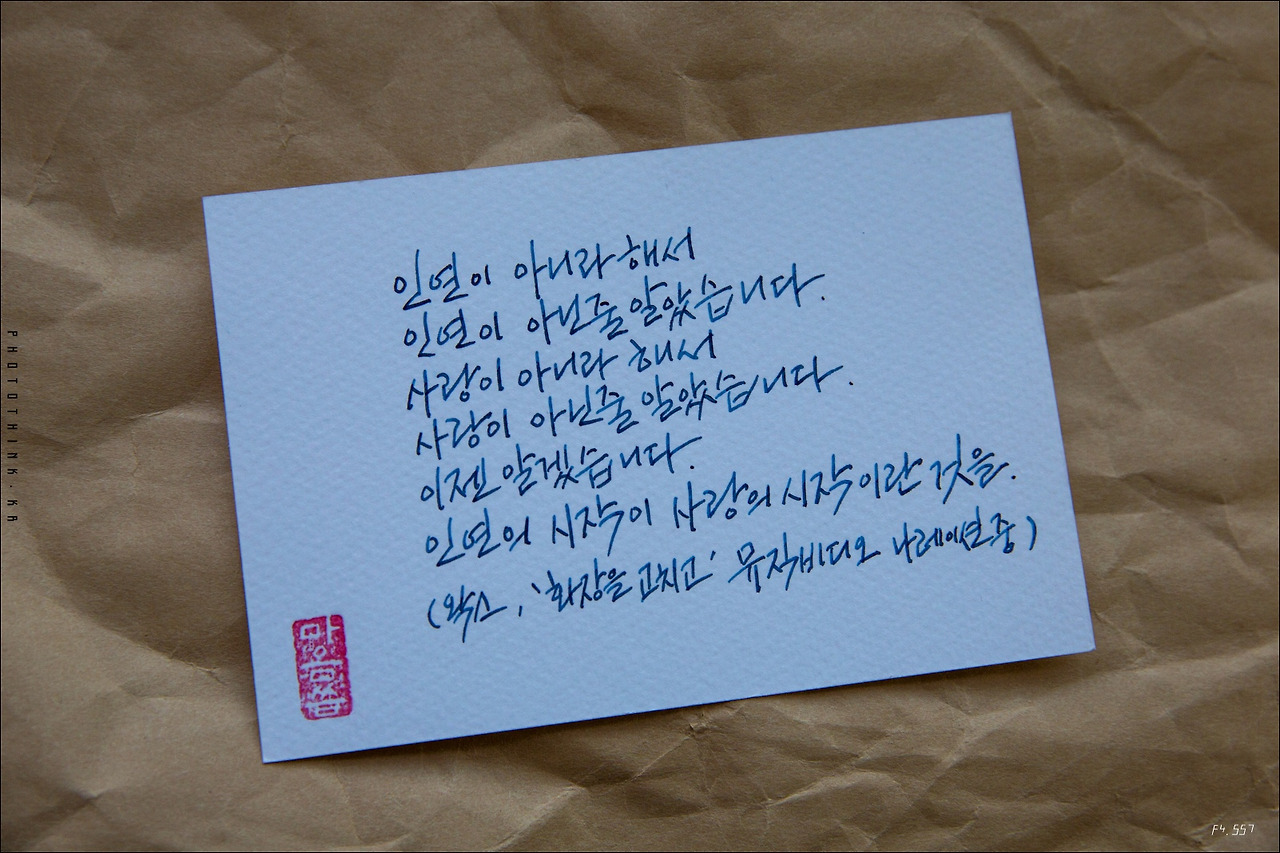 인연이 아니라 해서
인연이 아닌줄 알았습니다.
사랑이 아니라 해서
사랑이 아닌줄 알았습니다.
이젠 알겠습니다.
인연의 시작이 사랑의 시작이란 것을.
(왁스, '화장을 고치고' 뮤직비디오 나레이션 중)
PHOTOTHINK.KR
F4.557